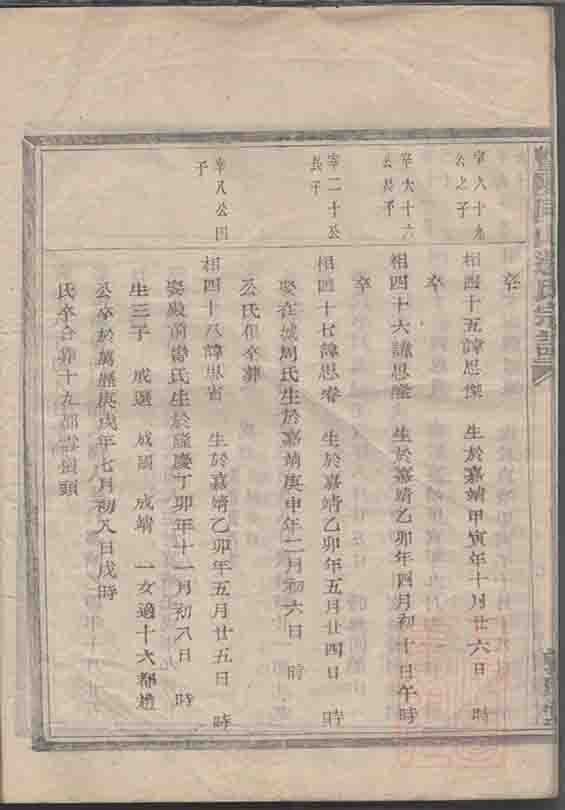 氏宗譜
卒
宰六十九公之子
相四十五諱思傑 生於嘉靖甲寅年十月廿六日 時
卒
宰六十六公長子
相四十六諱思 生於嘉靖乙卯年四月初十日午時
卒
宰二十公長子
相四十七諱思 生於嘉靖乙卯年五月廿四日 時
娶在城周氏生於嘉靖庚申年二月初六日 時
公氏俱卒葬
宰八公四子
相四十八諱思省 生於嘉靖乙卯年五月廿五日 時
娶殿前 氏生於隆慶丁卯年十一月初八日 時
生三子 成選 成 成靖 一女適十六都趙
公卒於萬歷庚戌年七月初八日戌時
氏卒合葬十九都 頭